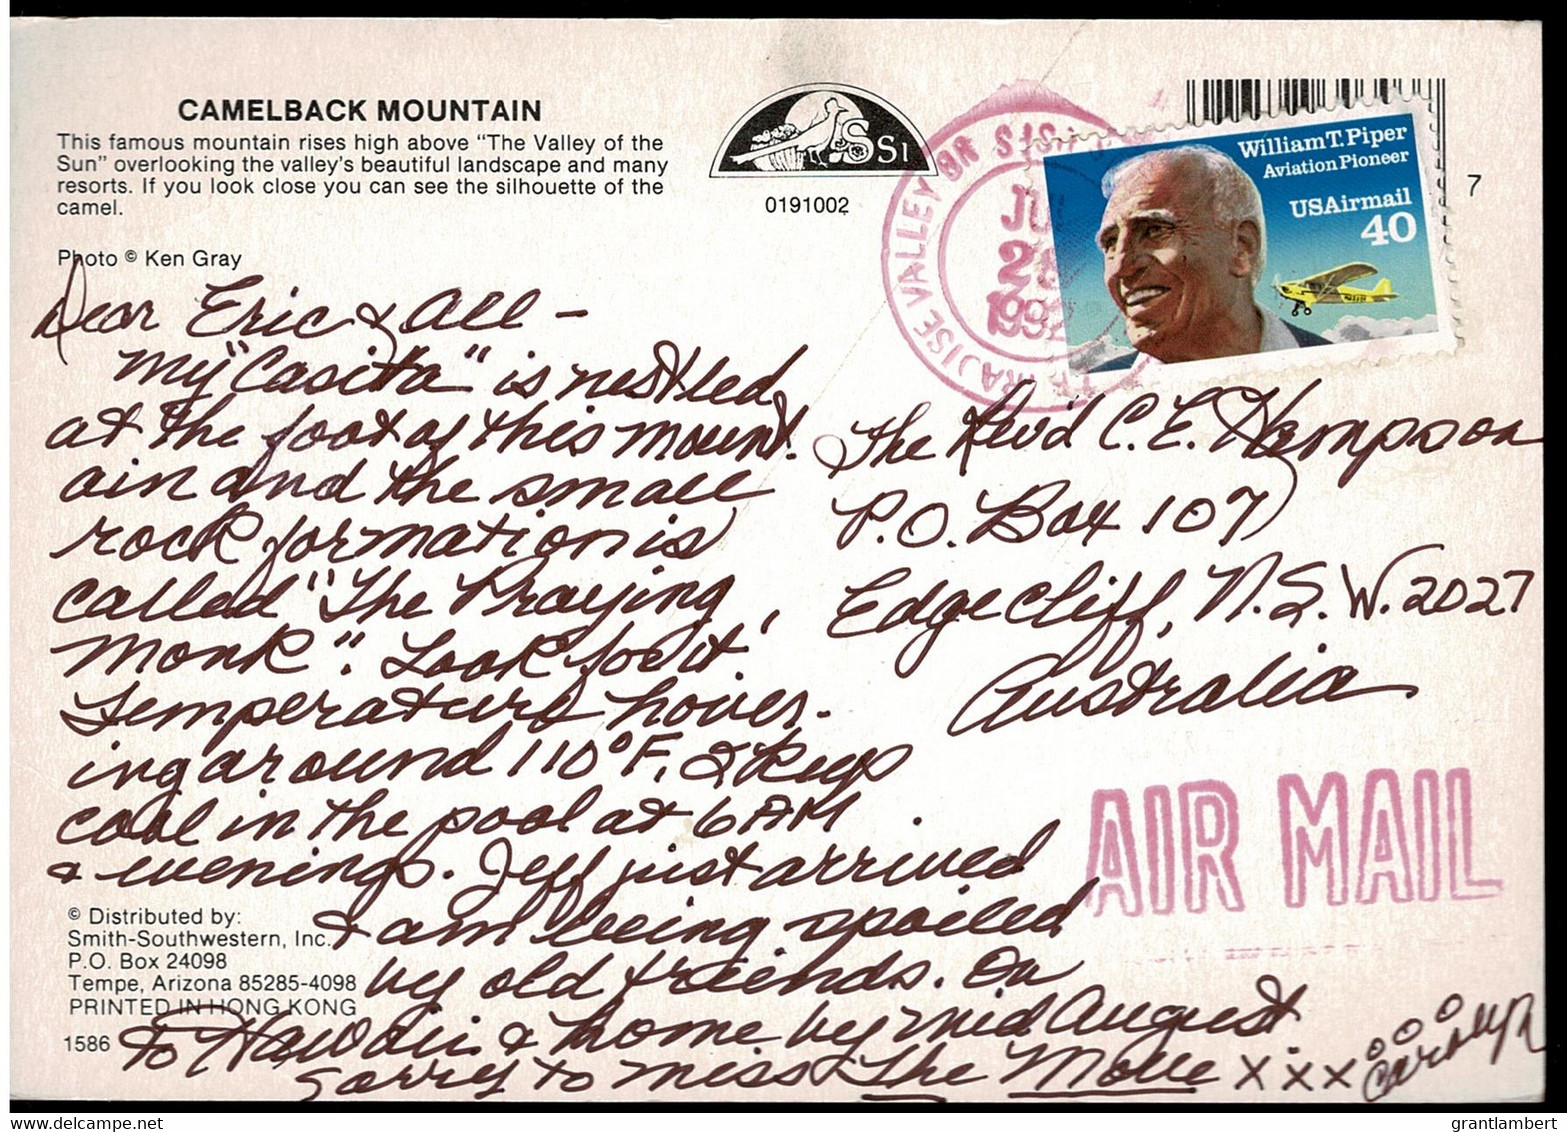 CAMELBACK MOUNTAIN
This famous mountain rises high above "The Valley of the
Sun" overlooking the valley's beautiful landscape and many
resorts. If you look close you can see the silhouette of the
camel.
Photo © Ken Gray
SSI
0191002
7
William T. Piper
Aviation Pioneer
USAirmail
40
VALLEY
28
Dear Eric & All –
My "Casita" is nestled
at the foot of this mount.
ain and the small
rock formation is
called "The Praying
Monk". Look for it!
Temperature hover-
ing around 110°F. & keep
cool in the pool at 6 AM
& evenings. Jeff just arrived
& am being spoiled
by old friends. On
to Hawaii & home by mid August.
Sorry to miss The Move x x x Carolyn
The Rev'd C. E. Hempson
P.O. Box 107
Edgecliff, N.S.W. 2027
Australia
AIR MAIL
© Distributed by:
Smith-Southwestern, Inc.
P.O. Box 24098
Tempe, Arizona 85285-4098
PRINTED IN HONG KONG
1586
grantlambert